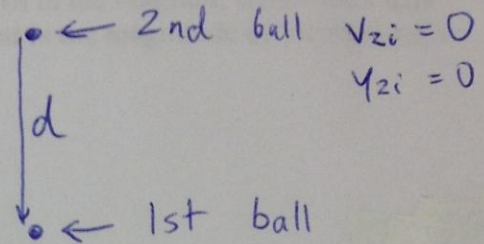 2nd ball V2i = 0
y2i = 0
d
1st ball